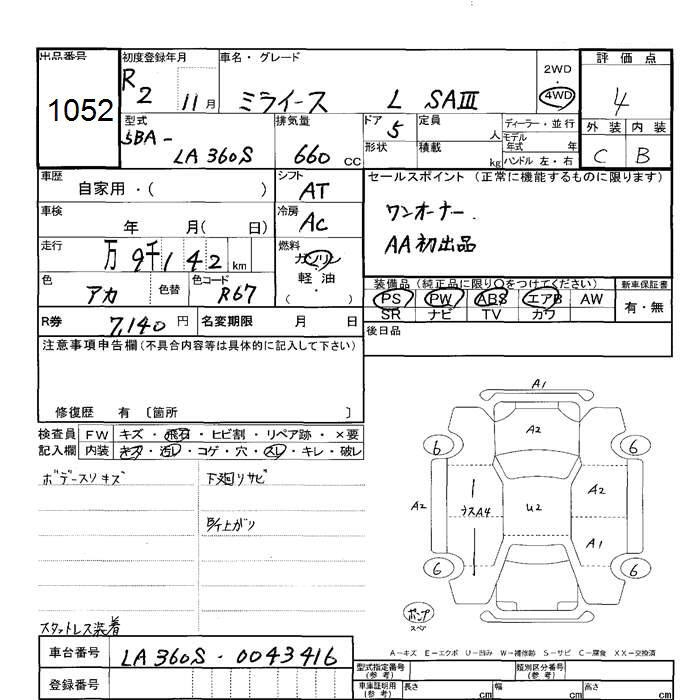 出品番号 初度登録年月 車名・グレード 評価点
1052 R2 11月 ミライース L SAⅢ 2WD・4WD 4
外装 内装
C B
型式 排気量 ドア 定員 ディーラー・並行
5BA-LA360S 660cc 5 人 モデル年式 年
形状 積載 kg ハンドル 左・右
車歴 シフト セールスポイント(正常に機能するものに限ります)
自家用・( ) AT
車検 冷房 ワンオーナー.
年 月( 日) AC AA初出品
走行 燃料
万 9千142km ガソリン・軽油・( )
色 色替 色コード
アカ R67
装備品(純正品に限り○をつけてください) 新車保証書
PS PW ABS エアB AW 有・無
SR ナビ TV カワ
R券 7,140円 名変期限 月 日
後日品
注意事項申告欄(不具合内容等は具体的に記入して下さい)
修復歴 有〔箇所 〕
検査員記入欄 FW キズ・飛石・ヒビ割・リペア跡・×要
内装 キズ・汚レ・コゲ・穴・スレ・キレ・破レ
ボデースリキズ 下廻リサビ
色上がり
スタットレス装着
A1
A2
6 6
A2 ウスA4 U2 A2
A1
6 6
ポンプ
スペア
A-キズ E-エクボ U-凹み W-補修跡 S-サビ C-腐食 XX-交換済
車台番号 LA360S-0043416
登録番号
型式指定番号(参考) 類別区分番号(参考)
車庫証明用(参考) 長さ cm 幅 cm 高さ cm